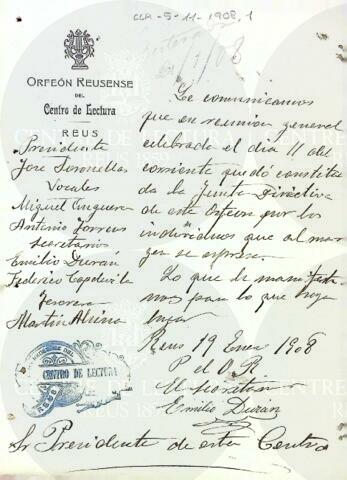 CLR-5-11-1908,1
ORFEÓN REUSENSE
DEL
Centro de Lectura
REUS
Presidente
José
Vocales
Miguel
Antonio Torrens
Secretarios
Emilio Durán
Federico Capdevila
Tesorero
Martín Alsina
Le comunicamos
que en reunión general
celebrada el día 11 del
corriente quedó constitui
da la Junta Directiva
de este Orfeon por los
individuos que al mar
gen se espresa.
Lo que le manifesta
mos para lo que haya
lugar
Reus 19 Enero 1908
P el O R
El secretario
Emilio Durán
CENTRO DE LECTURA
REUS
Sr Presidente de este Centro